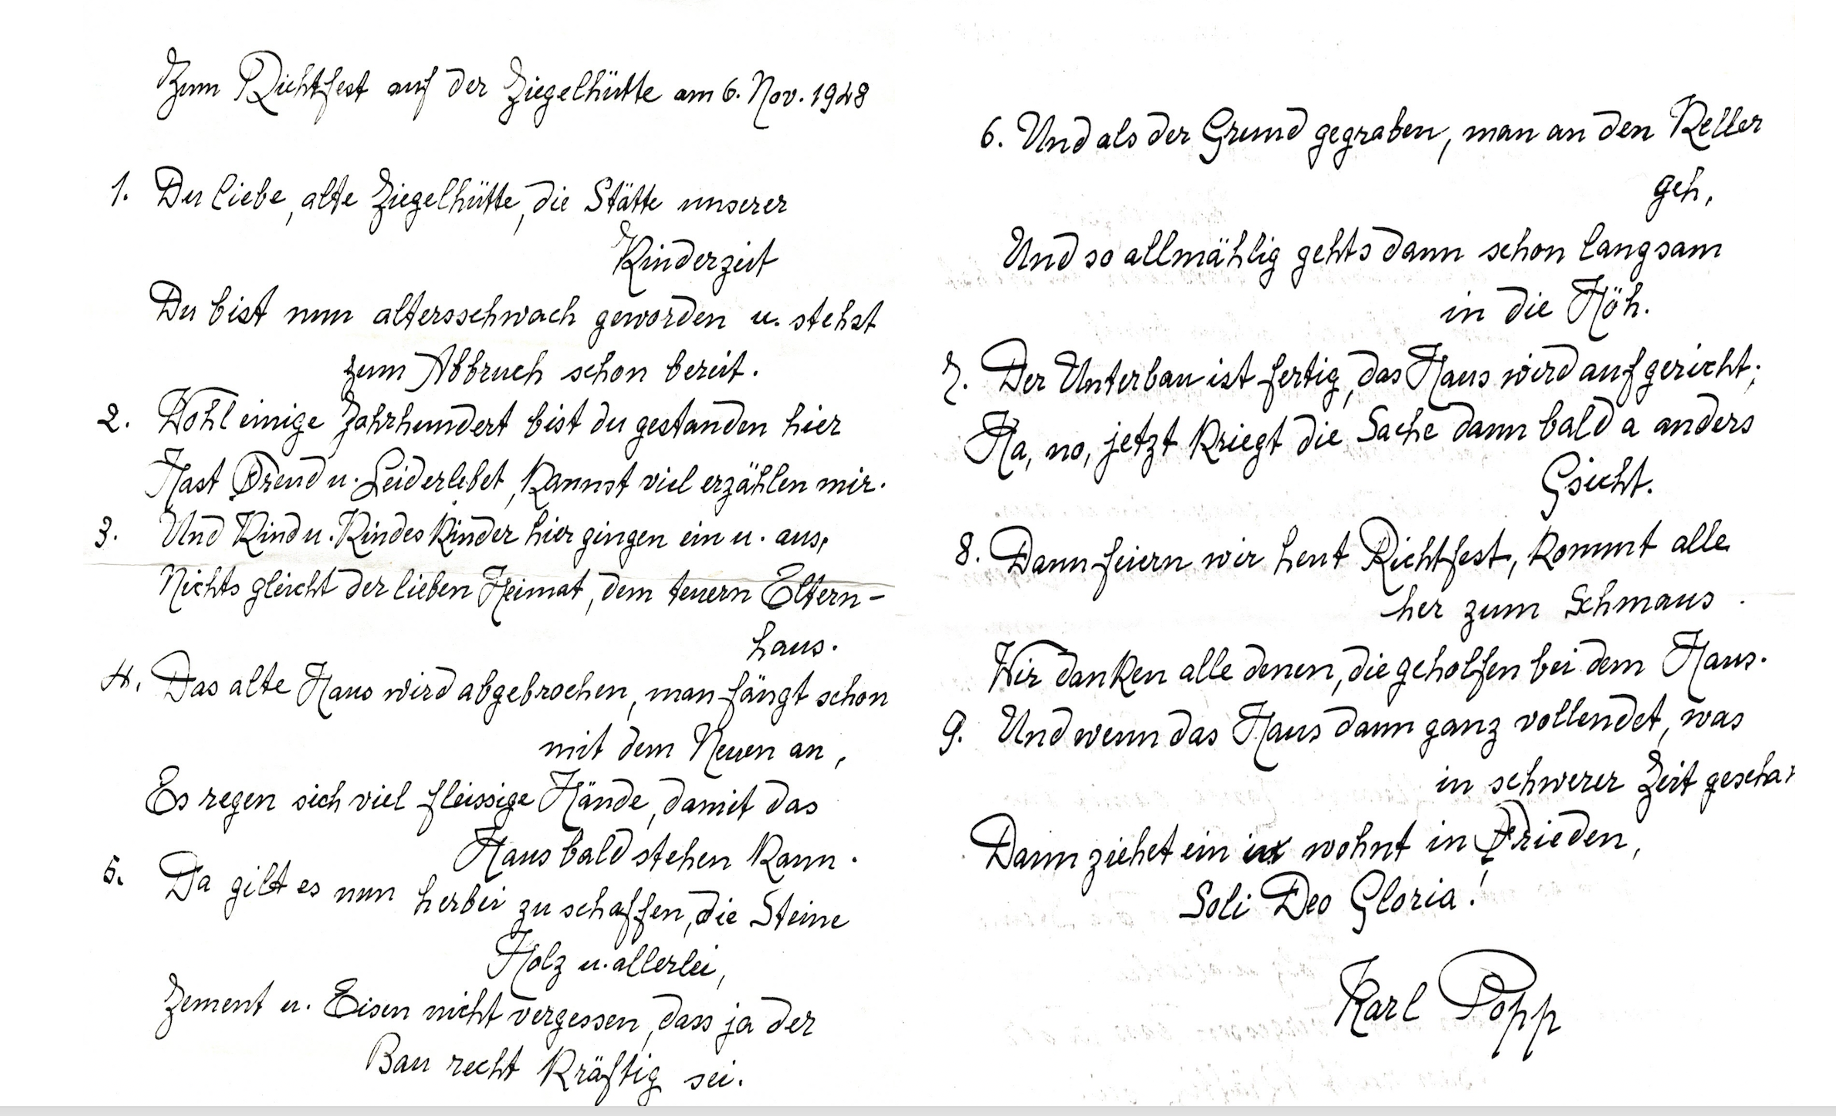 Zum Richtfest auf der Ziegelhütte am 6. Nov. 1948
1. Du liebe, alte Ziegelhütte, die Stätte unserer
Kinderzeit
Du bist nun altersschwach geworden u. stehst
zum Abbruch schon bereit.
2. Wohl einige Jahrhundert bist du gestanden hier
Hast Freud u. Leid erlebet, kannst viel erzählen mir.
3. Und Kind u. Kindeskinder hier gingen ein u. aus,
Nichts gleicht der lieben Heimat, dem teuern Eltern-
haus.
4. Das alte Haus wird abgebrochen, man fängt schon
mit dem Neuen an,
Es regen sich viel fleissige Hände, damit das
Haus bald stehen kann.
5. Da gilt es nun herbei zu schaffen, die Steine
Holz u. allerlei,
Zement u. Eisen nicht vergessen, dass ja der
Bau recht kräftig sei.
6. Und als der Grund gegraben, man an den Keller
geh,
Und so allmählig gehts dann schon langsam
in die Höh.
7. Der Unterbau ist fertig, das Haus wird aufgericht;
Ha, no, jetzt kriegt die Sache dann bald a anders
Gsicht.
8. Dann feiern wir heut Richtfest, kommt alle
her zum Schmaus.
Wir danken alle denen, die geholfen bei dem Haus.
9. Und wenn das Haus dann ganz vollendet, was
in schwerer Zeit geschah
Dann ziehet ein wohnt in Frieden,
Soli Deo Gloria!
Karl Popp